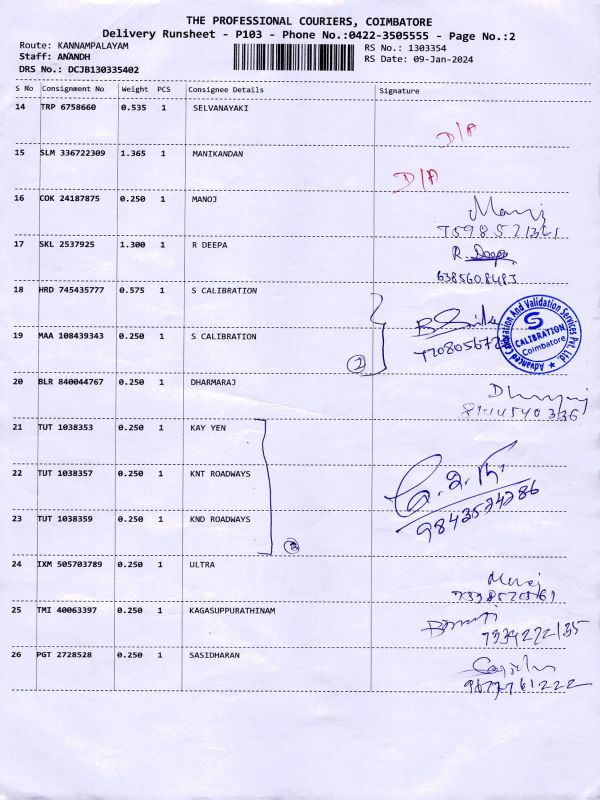 THE PROFESSIONAL COURIERS, COIMBATORE
Delivery Runsheet - P103 - Phone No.:0422-3505555 - Page No.:2
Route: KANNAMPALAYAM RS No.: 1303354
Staff: ANANDH RS Date: 09-Jan-2024
DRS No.: DCJB130335402
S No Consignment No Weight PCS Consignee Details Signature
14 TRP 6758660 0.535 1 SELVANAYAKI
D/A
15 SLM 336722309 1.365 1 MANIKANDAN
D/A
16 COK 24187875 0.250 1 MANOJ
17 SKL 2537925 1.300 1 R DEEPA R. Deepa
18 HRD 745435777 0.575 1 S CALIBRATION
Advanced Calibration And Validation Services Pvt. Ltd.
S
CALIBRATION
Coimbatore
19 MAA 108439343 0.250 1 S CALIBRATION
2
20 BLR 840044767 0.250 1 DHARMARAJ
8144540336
21 TUT 1038353 0.250 1 KAY YEN
22 TUT 1038357 0.250 1 KNT ROADWAYS
23 TUT 1038359 0.250 1 KND ROADWAYS
3
24 IXM 505703789 0.250 1 ULTRA
25 TMI 40063397 0.250 1 KAGASUPPURATHINAM
26 PGT 2728528 0.250 1 SASIDHARAN